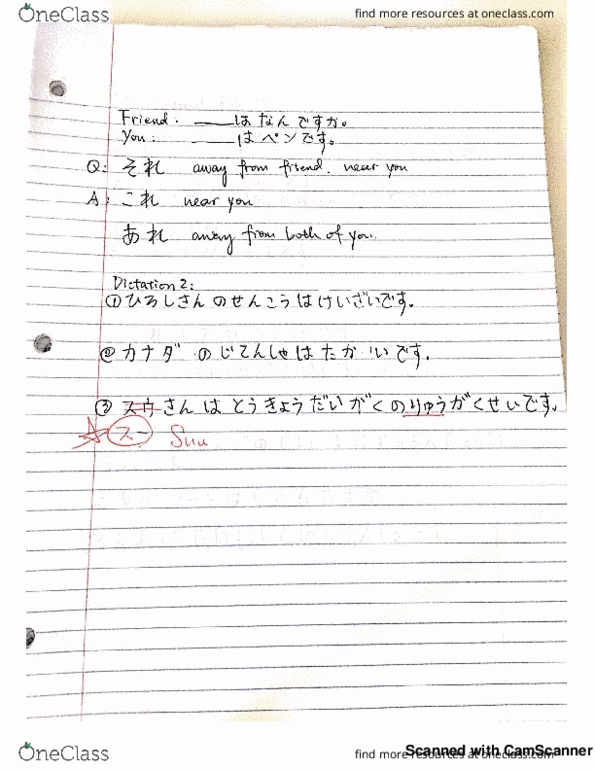 OneClass
find more resources at oneclass.com
Friend: ___はなんですか。
You: ___はペンです。
Q: それ away from friend. near you
A: これ near you
あれ away from both of you.
Dictation 2:
①ひろしさんのせんこうはけいざいです。
②カナダのじてんしゃはたかいです。
③スウさんはとうきょうだいがくのりゅうがくせいです。
スー Suu
OneClass
find more resources at oneclass.com
Scanned with CamScanner